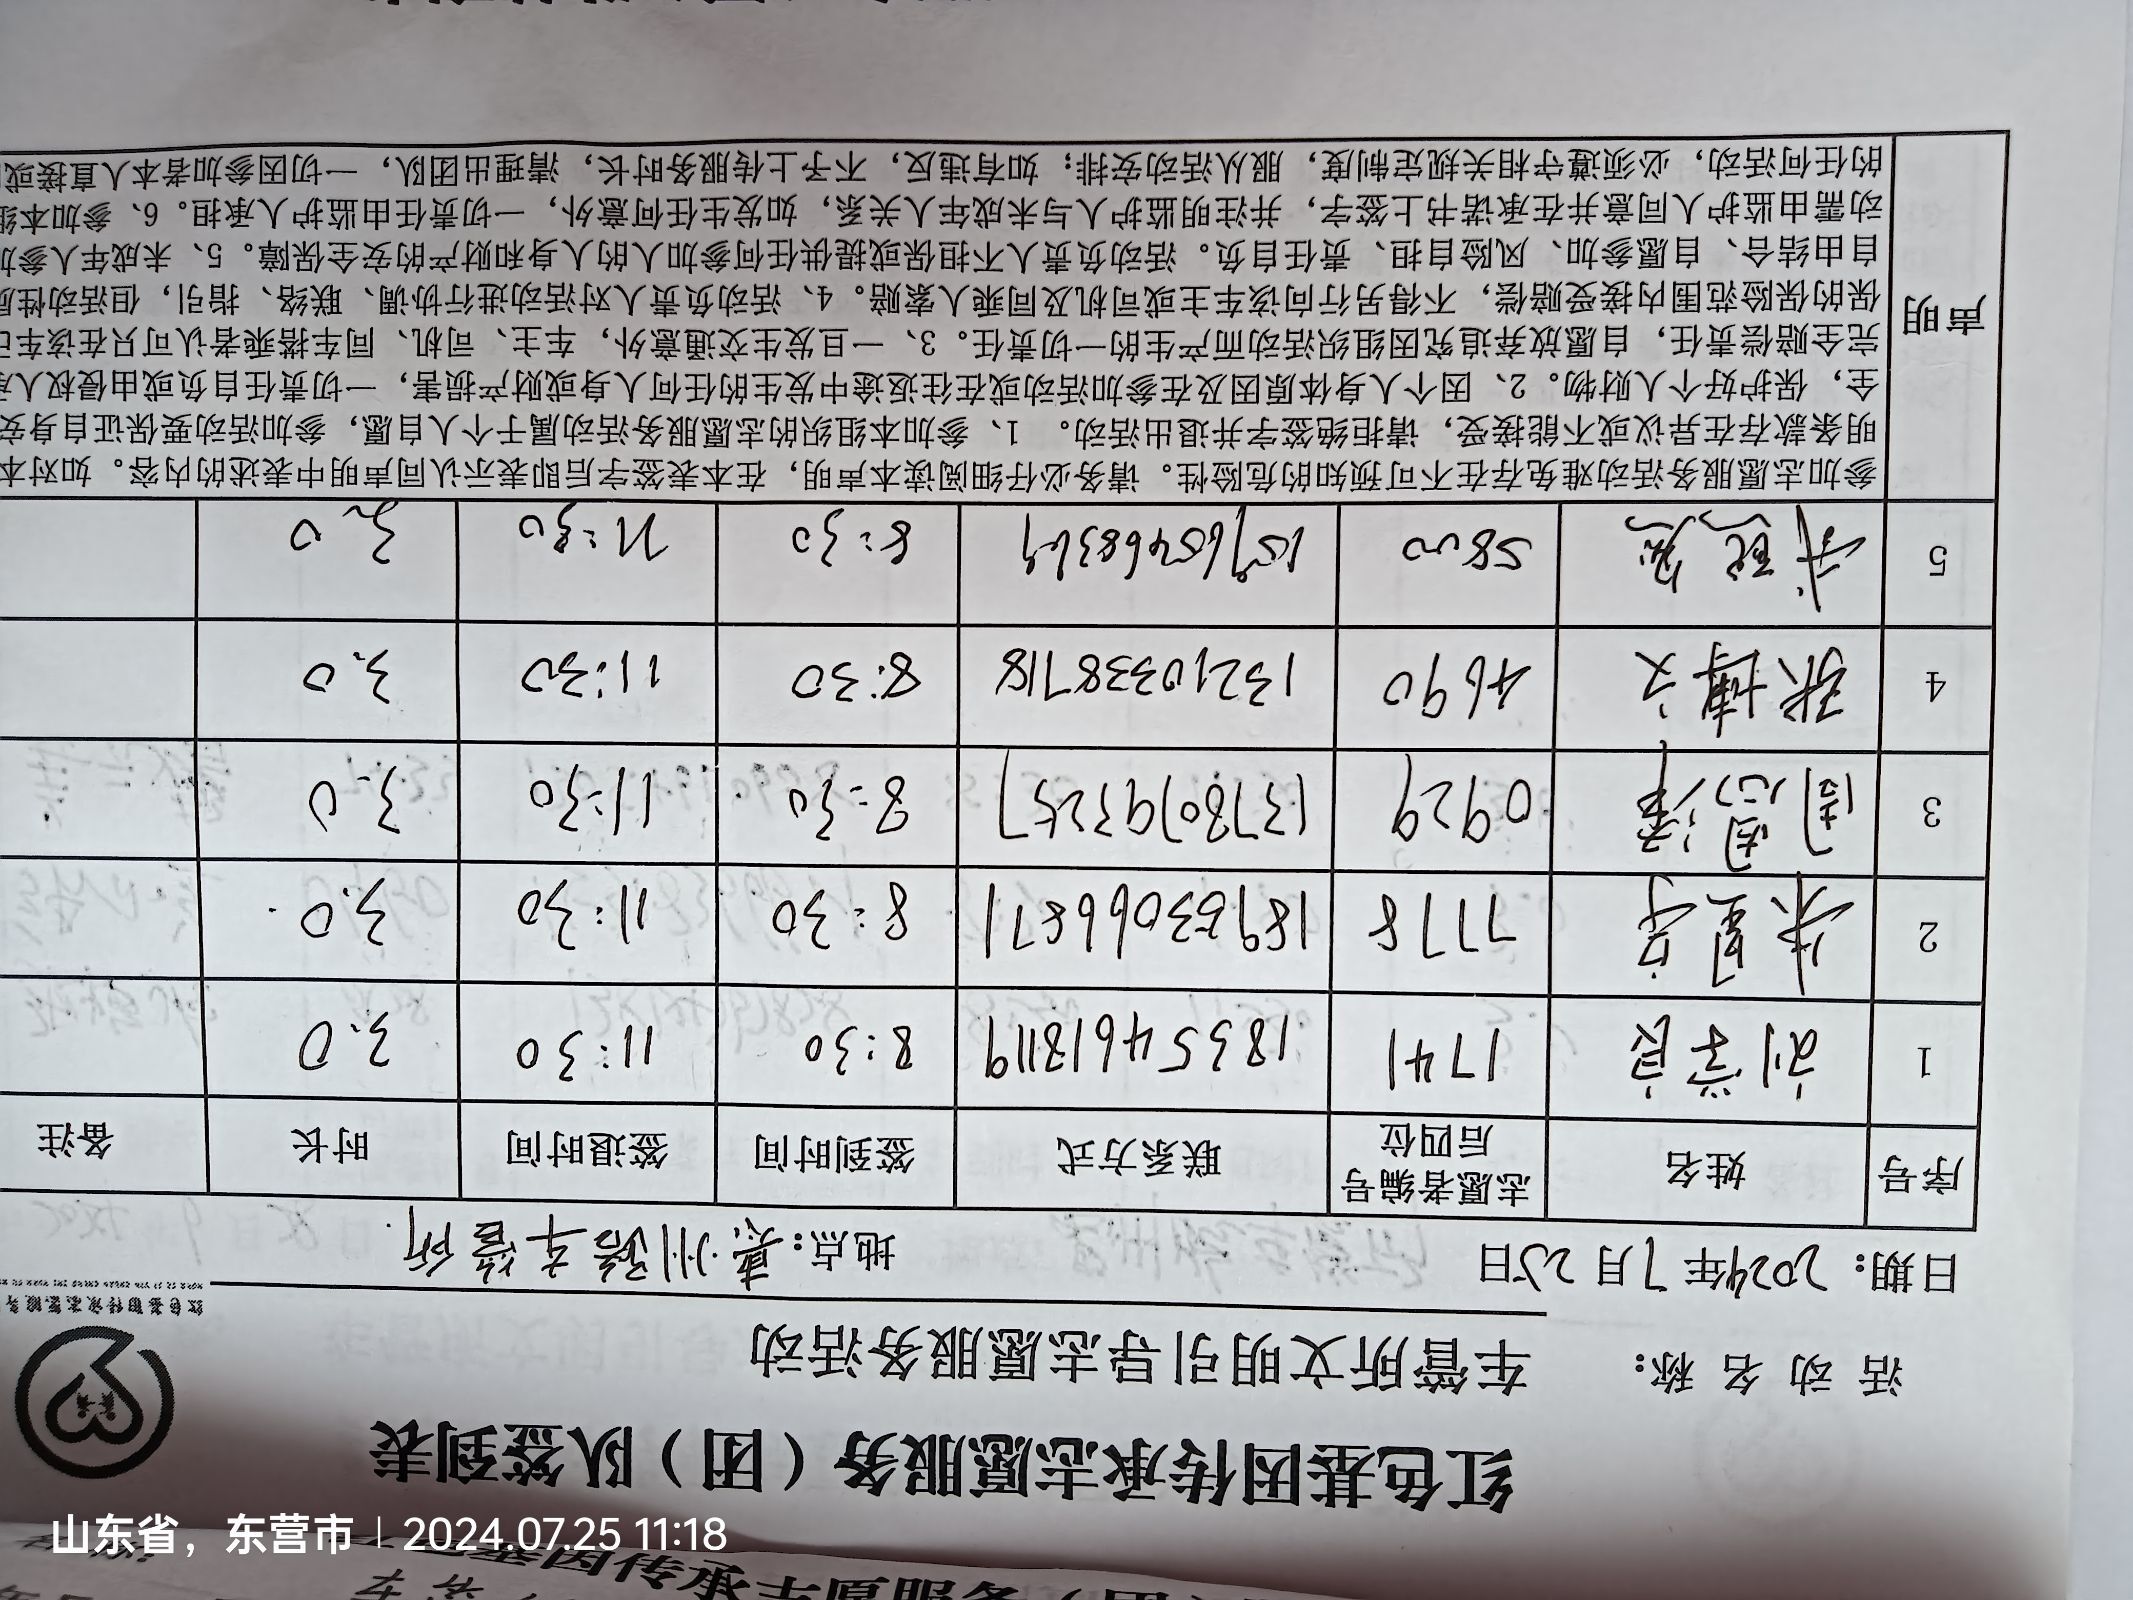 红色基因传承志愿服务（团）队签到表
活动名称： 车管所文明引导志愿服务活动
日期：2024年7月25日 地点：惠州路车管所
序号 姓名 志愿者编号后四位 联系方式 签到时间 签退时间 时长 备注
1 刘学良 1741 18354618119 8:30 11:30 3.0
2 7718 18953066871 8:30 11:30 3.0
3 0929 13780793257 8:30 11:30 3.0
4 张博文 4690 13210338718 8:30 11:30 3.0
5 5800 8:30 11:30 3.0
声明
参加志愿服务活动难免存在不可预知的危险性。请务必仔细阅读本声明，在本表签字后即表示认同声明中表述的内容。如对本
明条款存在异议或不能接受，请拒绝签字并退出活动。 1、参加本组织的志愿服务活动属于个人自愿，参加活动要保证自身安
全，保护好个人财物。2、因个人身体原因及在参加活动或在往返途中发生的任何人身或财产损害，一切责任自负或由侵权人承
完全赔偿责任，自愿放弃追究因组织活动而产生的一切责任。3、一旦发生交通意外，车主、司机、同车搭乘者认可只在该车已
保的保险范围内接受赔偿，不得另行向该车主或司机及同乘人索赔。4、活动负责人对活动进行协调、联络、指引，但活动性质
自由结合、自愿参加、风险自担、责任自负。活动负责人不担保或提供任何参加人的人身和财产的安全保障。5、未成年人参加
动需由监护人同意并在承诺书上签字，并注明监护人与未成年人关系，如发生任何意外，一切责任由监护人承担。6、参加本组
的任何活动，必须遵守相关规定制度，服从活动安排；如有违反，不予上传服务时长，请理出团队，一切因参加者本人直接或
山东省，东营市 | 2024.07.25 11:18